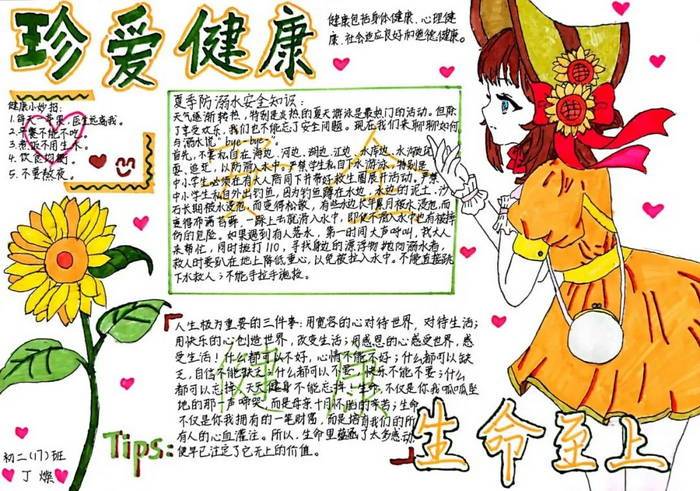 珍爱健康
健康包括身体健康、心理健
康、社会适应良好和道德健康。
健康小妙招:
1.每天一苹果,医生远离我。
不能吃
3.煮饭不用生水。
4.饮食均衡。
5.不要熬夜。
夏季防溺水安全知识:
天气逐渐转热,特别是炎热的夏天游泳是最热门的活动。但除
了享受欢乐,我们也不能忘了安全问题。现在我们来聊聊如何
与溺水说"bye-bye"
首先,不要私自在海边、河边、湖边、江边、水库边、水沟
边、追逐,以防滑入水中。严禁学生私自下水游泳。特别是
中小学生必须在有大人陪同下并带好救生圈展开活动。严禁
中小学生私自外出钓鱼,因为钓鱼蹲在水边,水边的泥土、沙
石长期被水浸泡,而变得松散,有些水边长年累月被水浸泡,而
重得布满苔藓,一踩上去就滑入水中,即使不滑入水中也有被摔
伤的危险。如果遇到有人落水,第一时间大声呼叫,找大人
来帮忙,同时拨打110,寻找身边的漂浮物抛向溺水者,
救人时要趴在地上降低重心,以免被拉入水中。不能直接跳
下水救人;不能手拉手施救。
人生极为重要的三件事:用宽容的心对待世界,对待生活;
用快乐的心创造世界,改变生活;用感恩的心感受世界,感
受生活!什么都可以不好,心情不能不好;什么都可以缺
乏,自信不能缺乏;什么都可以不要,快乐不能不要;什么
都可以忘掉,天天健身不能忘掉!生命,不仅是你我呱呱坠
地的那一声啼哭,而是母亲十月怀胎的辛苦;生命
不仅是你我拥有的一笔财富,而是培育我们的所
有人的心血灌注。所以,生命里蕴涵了太多感动,
便早已注定了它无上的价值。
健康
Tips:
生命至上
初二(17)班
丁燦